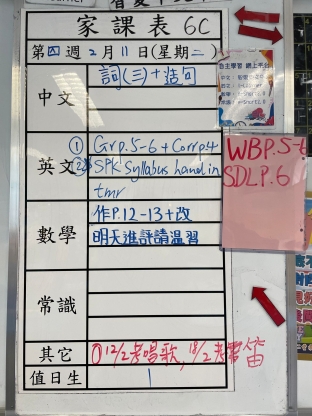 家課表 6C
第四週2月11日(星期二)
中文
詞(三)+造句
英文
① Grp.5-6+Corrp4
② SPK Syllabus hand in
tmr
數學
作P.12-13+改
明天進評請溫習
常識
其它
①12/2考唱歌,18/2考牧笛
值日生
1
自主學習 網上平台
WBP.5-6
SDLP.6